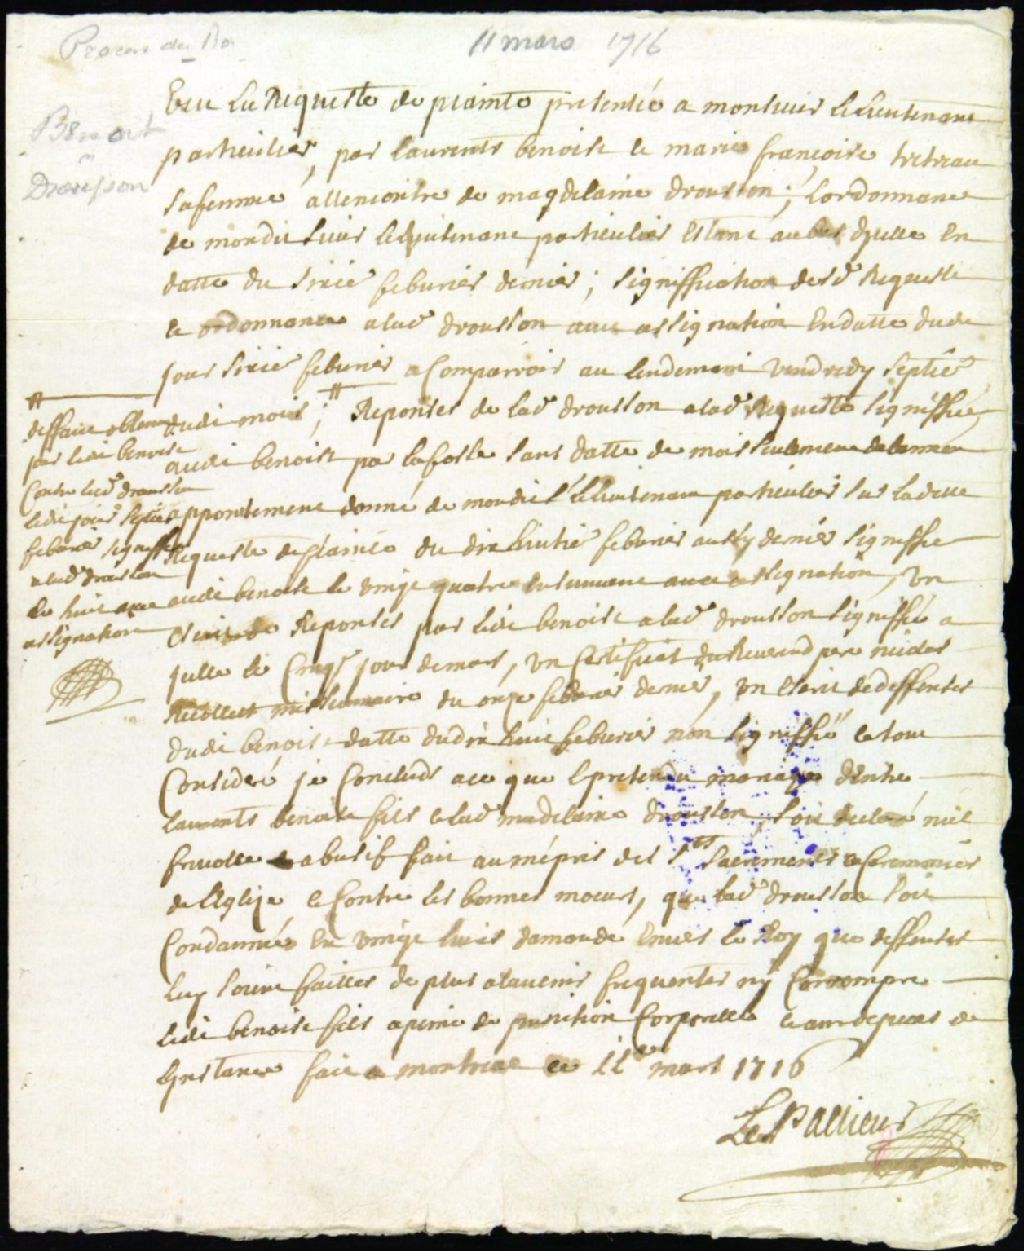 Procur du Ro
11 mars 1716
Benoist
Drousson
Veu La Requeste de plainte presentée a monsieur le Lieutenant
particulier, par laurents benoist et marie françoise tetreau
sa femme allencontre de magdelaine drousson; Lordonnance
de mondit sieur le Lieutenant particulier Estant au bas dycelle En
datte du sixie feburier dernier; signiffication desd Requeste
et ordonnance a lad drousson avec assignation En datte dudit
jour sixie feburier a Comparroir au Lendemain vendredy septie
dudit mois; Reponses de lad drousson a lad Requeste signiffiée
audit benoist par lafosse sans datte de mois seulement de lannée
appointement donné de mondit s le Lieutenant particulier sur ladite
Requeste de plainte du dix huitie feburier aussy dernier signiffié
audit benoist le vingt quatre ensuivant avec assignation, un
Escrit de Reponses par ledit benoist a lad drousson signiffié a
jcelle le Cinq jour de mars, un Certificat du Reverend pere nicolas
Recollect missionnaire du onze feburier dernier, un Escrit de deffenses
dudit benoist datté du dix huit feburier non signiffié le tout
Consideré je Concluds a ce que le pretendu mariage dEntre
laurents benoist fils et lad madelaine drousson, soit declaré nul
frivolle et abusif fait au mépris des Sts Sacrements et Ceremonies
de lEglize et Contre les bonnes moeurs, que lad drousson soit
Condamnée En vingt livres damande Envers le Roy que deffenses
luy soient faittes de plus a lavenir frequenter ny Corrompre
ledit benoist fils a peine de punition Corporelle et aux depens de
ljnstance fait a montreal ce 11e mars 1716
LePallieur
deffaut obtenu
par ledit benoist
Contre lad drousson
ledit jour septie
feburier signiffié
a lad drousson
le huit avec
assignation